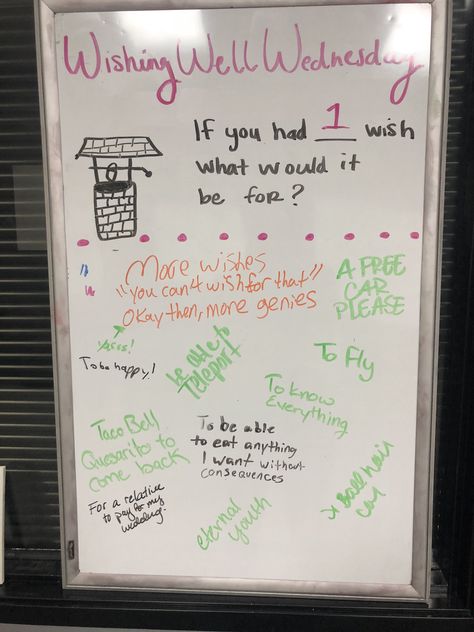 Wishing Well Wednesday
If you had 1 wish
what would it
be for?
More wishes
"you can't wish for that"
Okay then, more genies
A FREE
CAR
PLEASE
Yass!
To be happy!
be able to
Teleport
To Fly
To know
Everything
Taco Bell
Quesarito to
come back
To be able
to eat anything
I want without
consequences
For a relative
to pay for my
wedding.
eternal
youth